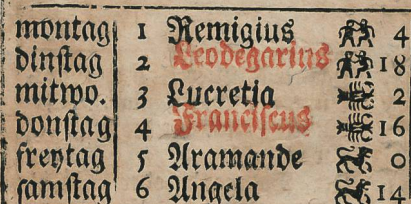 montag 1 Remigius 4
dinſtag 2 Leodegarius 18
mitwo. 3 Lucretia 2
donſtag 4 Franciſcus 16
freytag 5 Aramande 0
ſamſtag 6 Angela 14